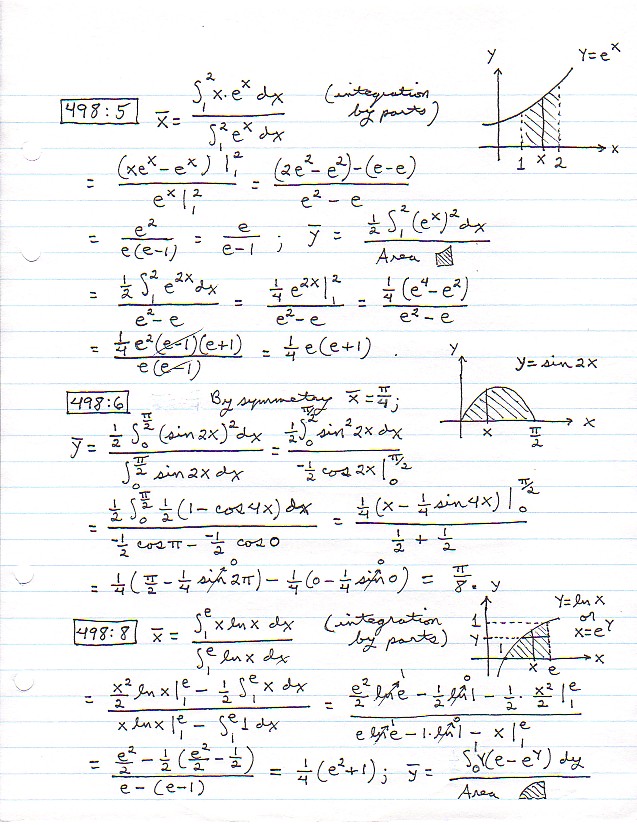 498:5 x̄ = ∫₁² x·eˣ dx / ∫₁² eˣ dx (integration by parts) y y=eˣ 1 x 2 x
= (xeˣ − eˣ)|₁² / eˣ|₁² = (2e² − e²) − (e − e) / e² − e
= e² / e(e−1) = e / e−1 ; ȳ = ½ ∫₁² (eˣ)² dx / Area
= ½ ∫₁² e²ˣ dx / e² − e = ¼ e²ˣ|₁² / e² − e = ¼ (e⁴ − e²) / e² − e
= ¼ e² (e−1)(e+1) / e(e−1) = ¼ e(e+1) .
y y=sin 2x x π/2 x
498:6 By symmetry x̄ = π/4;
ȳ = ½ ∫₀^(π/2) (sin 2x)² dx / ∫₀^(π/2) sin 2x dx = ½ ∫₀^(π/2) sin² 2x dx / −½ cos 2x|₀^(π/2)
= ½ ∫₀^(π/2) ½ (1 − cos 4x) dx / −½ cos π − −½ cos 0 = ¼ (x − ¼ sin 4x)|₀^(π/2) / ½ + ½
= ¼ (π/2 − ¼ sin 2π⁰) − ¼ (0 − ¼ sin 0⁰) = π/8 .
498:8 x̄ = ∫₁ᵉ x ln x dx / ∫₁ᵉ ln x dx (integration by parts) y 1 y 1 x e x y=ln x or x=eʸ
= x²/2 ln x|₁ᵉ − ½ ∫₁ᵉ x dx / x ln x|₁ᵉ − ∫₁ᵉ 1 dx = e²/2 ln e¹ − ½ ln 1⁰ − ½ · x²/2|₁ᵉ / e ln e¹ − 1·ln 1⁰ − x|₁ᵉ
= e²/2 − ½ (e²/2 − ½) / e − (e−1) = ¼ (e²+1) ; ȳ = ∫₀¹ y(e − eʸ) dy / Area